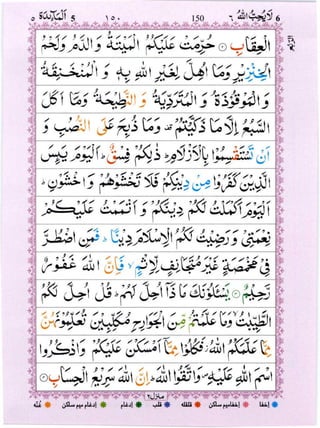 ٥ اَلْمَآئِدَة 5 ١٥٠ 150 لَا يُحِبُّ اللّٰهُ ٦ 6
الْعِقَابِ ۞ حُرِّمَتْ عَلَيْكُمُ الْمَيْتَةُ وَ الدَّمُ وَ لَحْمُ
الْخِنْزِيْرِ وَ مَا اُهِلَّ لِغَيْرِ اللّٰهِ بِهٖ وَ الْمُنْخَنِقَةُ
وَ الْمَوْقُوْذَةُ وَ الْمُتَرَدِّيَةُ وَ النَّطِيْحَةُ وَ مَاۤ اَكَلَ
السَّبُعُ اِلَّا مَا ذَكَّيْتُمْ وَ مَا ذُبِحَ عَلَى النُّصُبِ وَ
اَنْ تَسْتَقْسِمُوْا بِالْاَزْلَامِ ذٰلِكُمْ فِسْقٌ اَلْيَوْمَ يَىِٕسَ
الَّذِيْنَ كَفَرُوْا مِنْ دِيْنِكُمْ فَلَا تَخْشَوْهُمْ وَ اخْشَوْنِ
اَلْيَوْمَ اَكْمَلْتُ لَكُمْ دِيْنَكُمْ وَ اَتْمَمْتُ عَلَيْكُمْ
نِعْمَتِيْ وَ رَضِيْتُ لَكُمُ الْاِسْلَامَ دِيْنًا فَمَنِ اضْطُرَّ
فِيْ مَخْمَصَةٍ غَيْرَ مُتَجَانِفٍ لِّاِثْمٍ فَاِنَّ اللّٰهَ غَفُوْرٌ
رَّحِيْمٌ ۞ يَسْـَٔلُوْنَكَ مَا ذَاۤ اُحِلَّ لَهُمْ قُلْ اُحِلَّ لَكُمُ
الطَّيِّبٰتُ وَ مَا عَلَّمْتُمْ مِّنَ الْجَوَارِحِ مُكَلِّبِيْنَ تُعَلِّمُوْنَهُنَّ
مِمَّا عَلَّمَكُمُ اللّٰهُ فَكُلُوْا مِمَّاۤ اَمْسَكْنَ عَلَيْكُمْ وَ اذْكُرُوا
اسْمَ اللّٰهِ عَلَيْهِ وَ اتَّقُوا اللّٰهَ اِنَّ اللّٰهَ سَرِيْعُ الْحِسَابِ ۞
منزل ٢
اخفا اخفا ميم ساكن قلقله قلب ادغام ادغام ميم ساكن غنّه